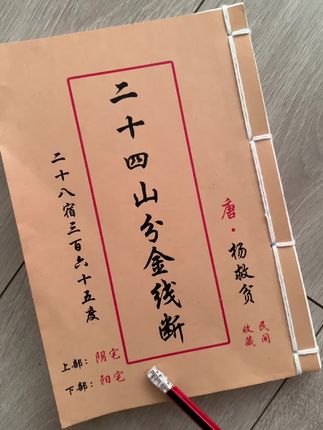 二十四山分金线断
唐·杨救贫
民间
收藏
二十八宿三百六十五度
上部：阴宅
下部：阳宅